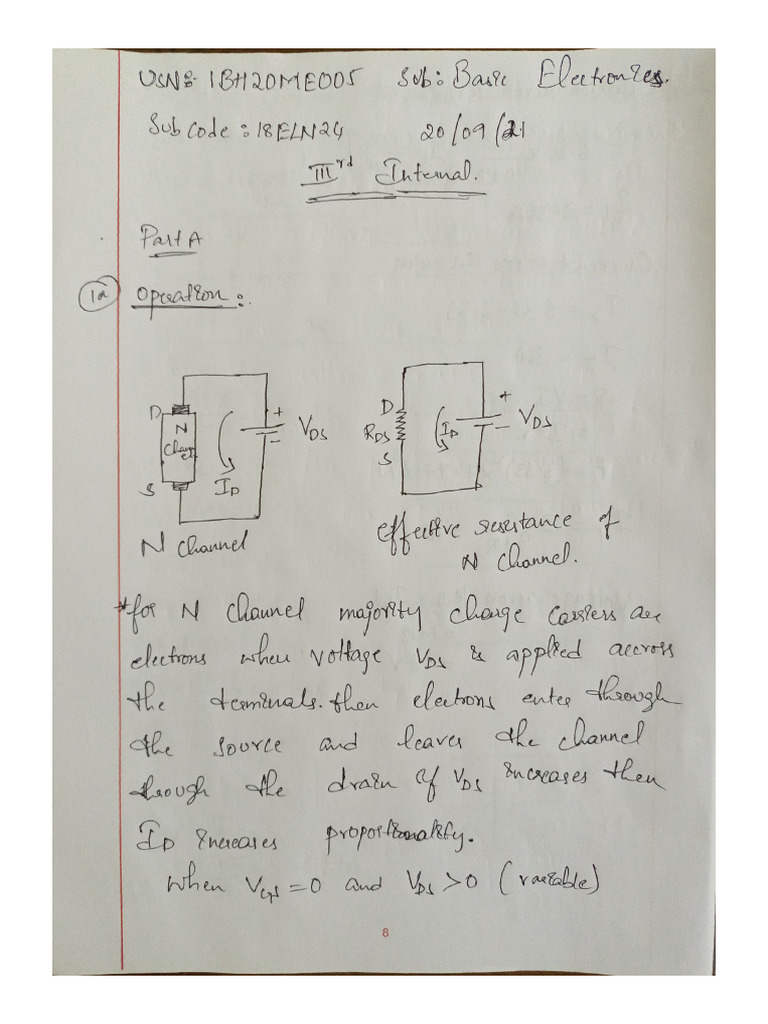 USN:- 1BH20ME005 Sub: Basic Electronics.
Sub code: 18ELN24 20/09/21
IIIrd Internal.
Part A
1a Operation:.
D N Channel S ID + - VDS
D RDS S ID + - VDS
N channel
effective resistance of
N channel.
*for N channel majority charge carriers are
electrons when voltage VDS is applied accross
the terminals. then electrons enter through
the source and leaves the channel
through the drain if VDS increases then
ID increases proportionality.
when VGS = 0 and VDS > 0 (variable)
8